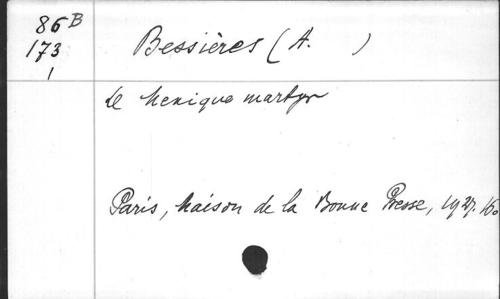 86 B
173
1
Bessières (A. )
Le Mexique martyr
Paris, Maison de la Bonne Presse, 1927. 16o